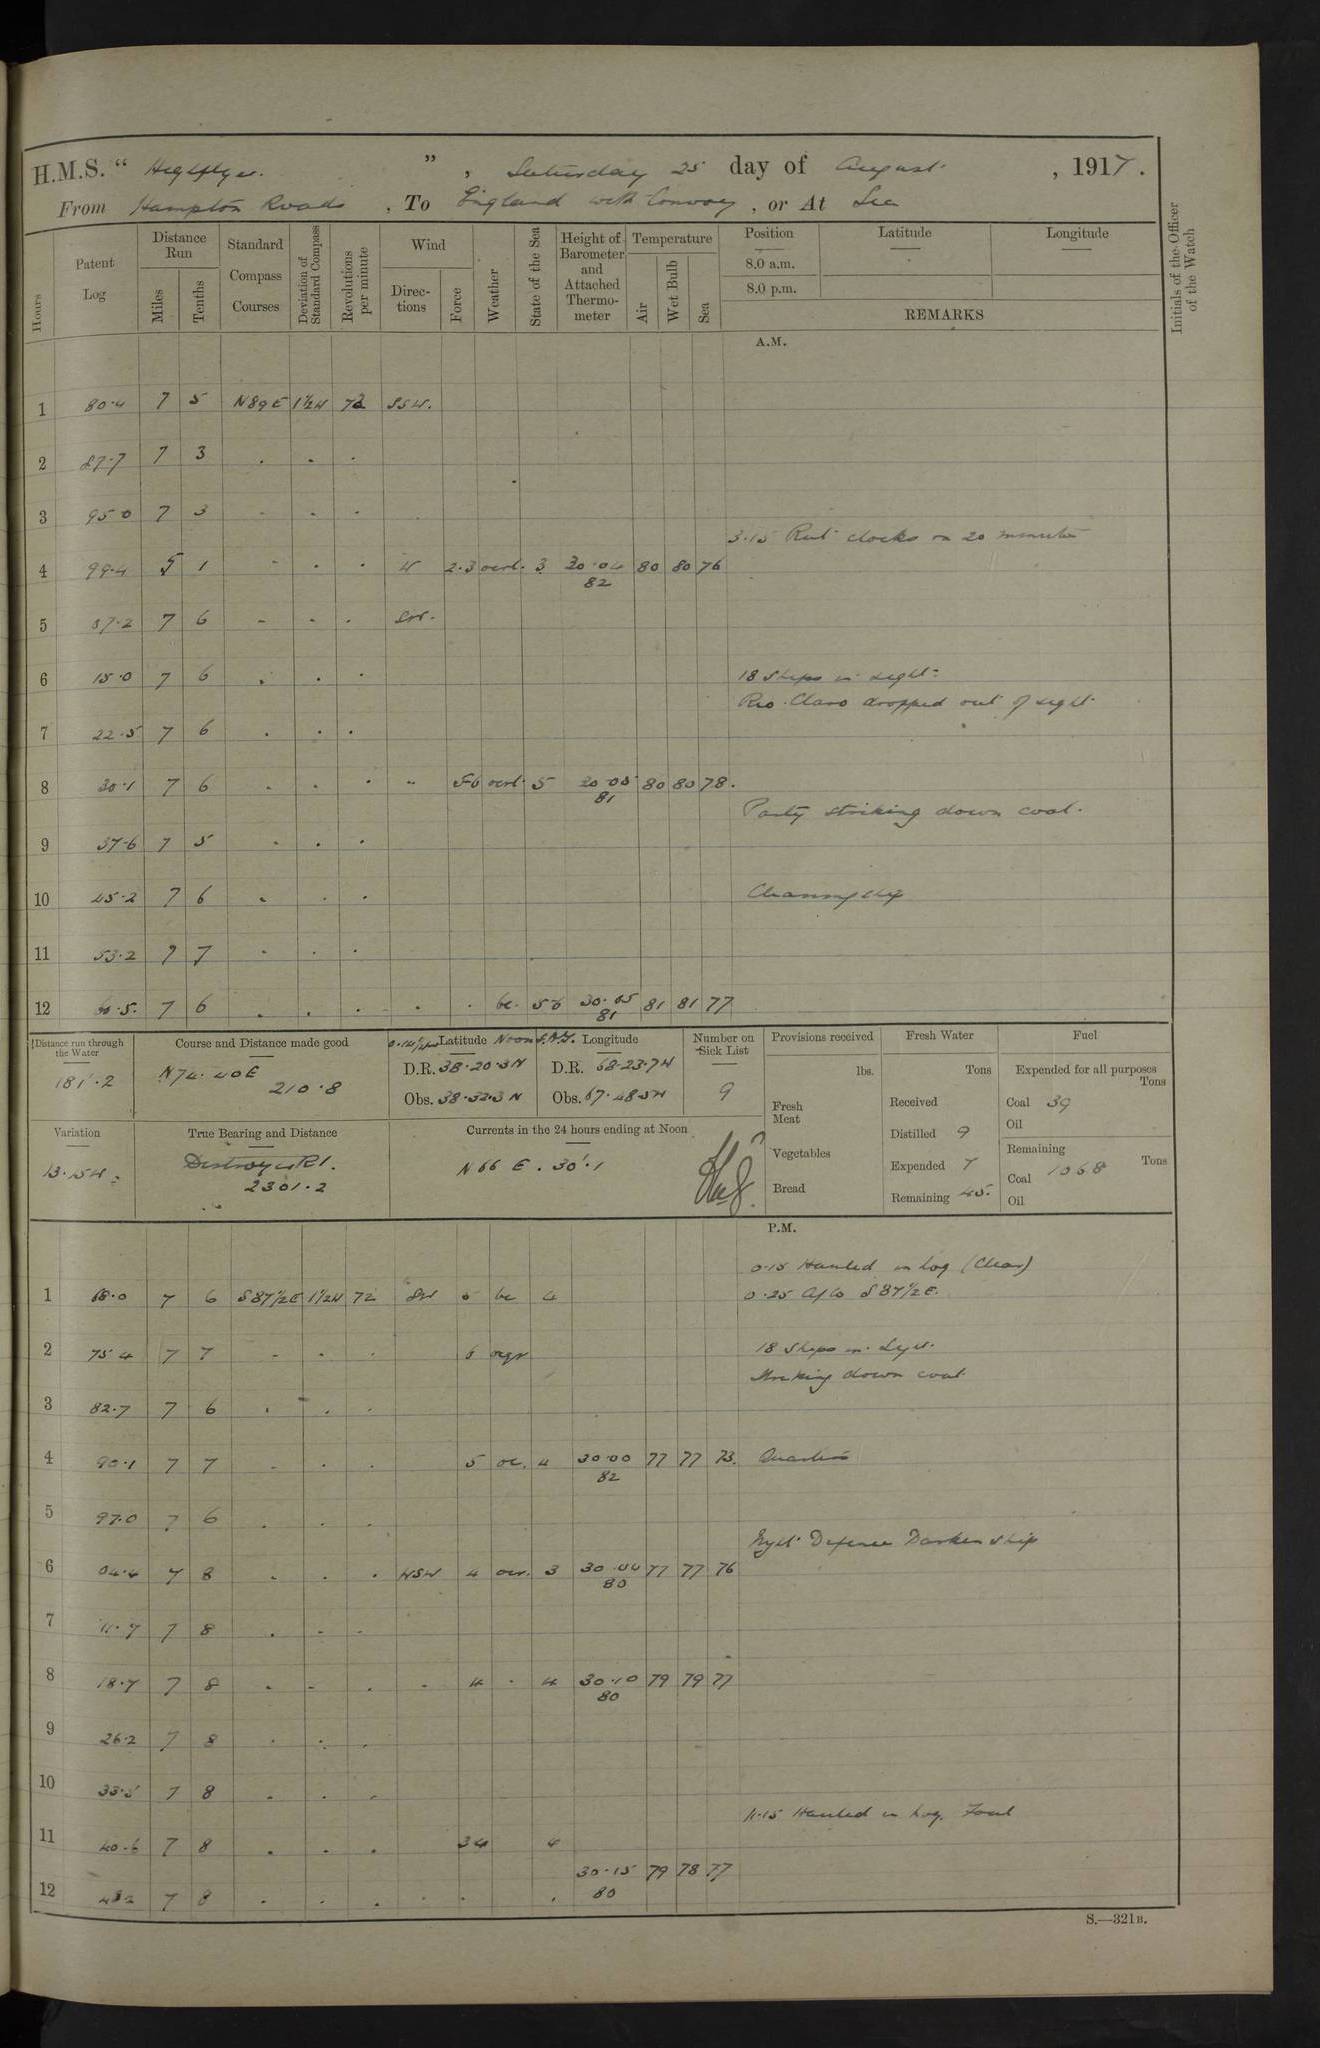 H.M.S. “ Highflyer. ”, Saturday 25 day of August, 1917.
From Hampton Roads, To England with Convoy, or At Sea
Hours
Patent Log
Distance Run
Miles
Tenths
Standard Compass Courses
Deviation of Standard Compass
Revolutions per minute
Wind
Directions
Force
Weather
State of the Sea
Height of Barometer and Attached Thermometer
Temperature
Air
Wet Bulb
Sea
Position
8.0 a.m.
8.0 p.m.
Latitude
Longitude
REMARKS
Initials of the Officer of the Watch
A.M.
1 80.4 7 5 N89E 1½W 72 SSW.
2 87.7 7 3 . . .
3 95.0 7 3 - . .
3.15 Put clocks on 20 minutes
4 99.4 5 1 - . . W 2.3 2 3 30.04 80 80 76
82
5 07.2 7 6 - . . SW.
6 15.0 7 6 . . . 18 Ships in sight.
Rio Claro dropped out of sight
7 22.5 7 6 . . .
8 30.1 7 6 . . . " 5-6 5 30.05 80 80 78.
81
Party striking down coal.
9 37.6 7 5 . . .
10 45.2 7 6 . . . Cleaning ship
11 53.2 7 7 . . .
12 60.5. 7 6 . . . . . bc. 56 30.05 81 81 77
81
Distance run through the Water
181.2
Course and Distance made good
N74.40E
210.8
Latitude Noon
D.R. 38.20.3N
Obs. 38.32.3N
Longitude
D.R. 68.23.7W
Obs. 67.48.5W
Number on Sick List
9
Provisions received
lbs.
Fresh Meat
Vegetables
Bread
Fresh Water
Tons
Received
Distilled 9
Expended 7
Remaining 45.
Fuel
Expended for all purposes
Tons
Coal 39
Oil
Remaining
Tons
Coal 1068
Oil
Variation
13.15W.
True Bearing and Distance
Destroyer R1.
2301.2
Currents in the 24 hours ending at Noon
N66 E. 30'.1
P.M.
0.15 Hauled in log (Clear)
1 68.0 7 6 S87½E 1½W 72 SW 5 bc 4 0.25 A/Co S87½E.
2 75.4 7 7 - . . 6 18 Ships in sight.
Striking down coal
3 82.7 7 6 . . .
4 90.1 7 7 - . . 5 oc. 4 30.00 77 77 73. Quarters
82
5 97.0 7 6 . . .
Night Defence Darken ship
6 04.4 7 8 . . . WSW 4 3 30.04 77 77 76
80
7 11.7 7 8 . - -
8 18.7 7 8 . - . . 4 . 4 30.10 79 79 77
80
9 26.2 7 8 . . .
10 33.5 7 8 . . .
11.15 Hauled in log. Foul
11 40.6 7 8 . . . 34 4
30.15 79 78 77
12 48.2 7 8 . . . . . . 80
S.—321B.